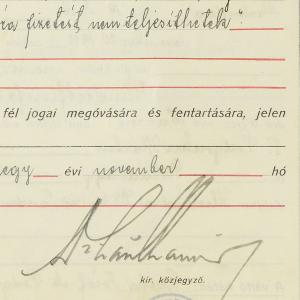 fizetést nem teljesíthetek".
fél jogai megóvására és fentartására, jelen
egy évi november hó
kir. közjegyző.